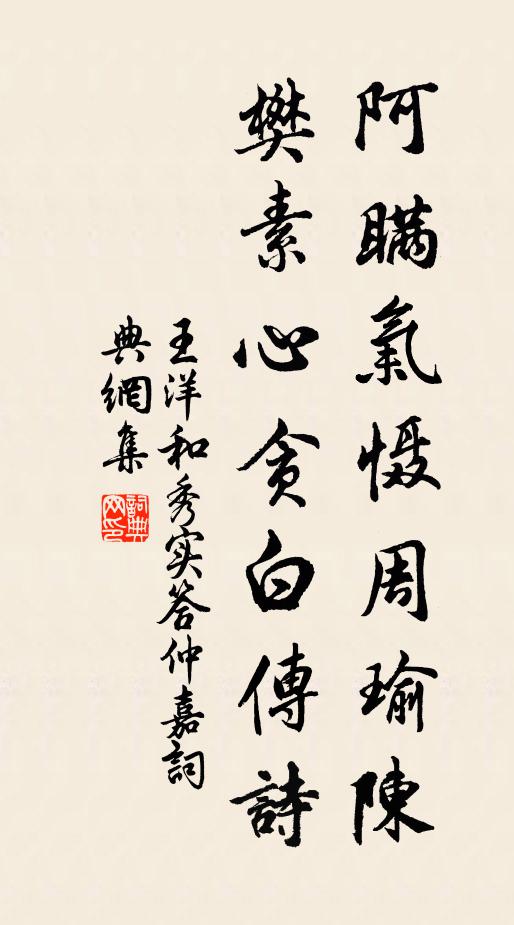 阿瞞氣慑周瑜陳
樊素心贪白傳詩
王洋和秀实答仲嘉詞
典網集
詞典网印